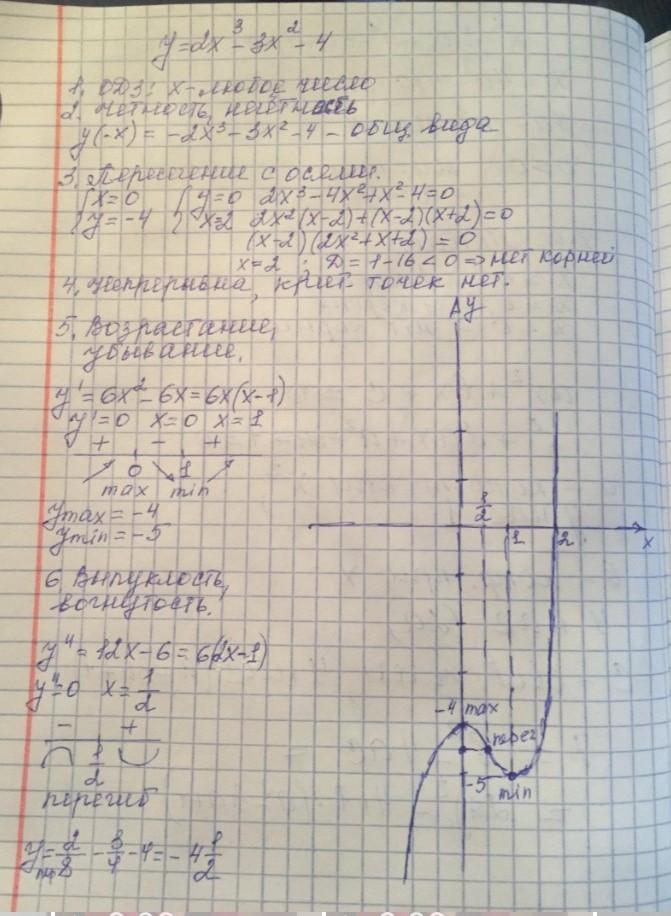 y=2x³-3x²-4
1. ОДЗ: x-любое число
2. Четность, нечетность
y(-x) = -2x³-3x²-4 - общ. вида
3. Пересечение с осями.
{x=0 {y=0 2x³-4x²+x²-4=0
{y=-4 {x=2 2x²(x-2)+(x-2)(x+2)=0
(x-2)(2x²+x+2)=0
x=2 ; D=1-16<0 => нет корней
4. Непрерывна, крит. точек нет.
5. Возрастание,
убывание.
y'=6x²-6x=6x(x-1)
y'=0 x=0 x=1
+ - +
0 1
max min
ymax = -4
ymin = -5
6. Выпуклость,
вогнутость.
y"=12x-6=6(2x-1)
y"=0 x=1/2
- +
1/2
перегиб
y = 2/8 - 3/4 - 4 = -4 1/2
y
1/2
1 2 x
-4 max
перег
-5
min